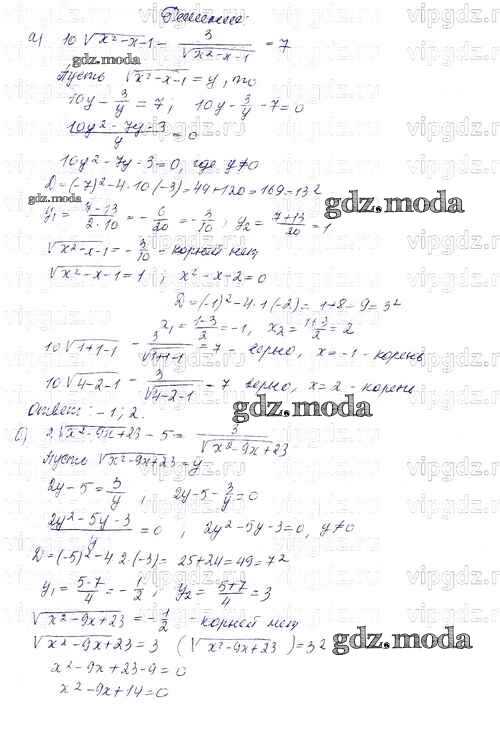 Решение:
а) 10√(x²-x-1) - 3/√(x²-x-1) = 7
Пусть √(x²-x-1) = y, то
10y - 3/y = 7; 10y - 3/y - 7 = 0
(10y²-7y-3)/y = 0
10y²-7y-3=0, где y≠0
D=(-7)²-4·10(-3)=49+120=169=13²
y₁ = (7-13)/(2·10) = -6/20 = -3/10; y₂ = (7+13)/20 = 1
√(x²-x-1) = -3/10 - корней нет
√(x²-x-1) = 1; x²-x-2=0
D=(-1)²-4·1(-2)=1+8=9=3²
x₁ = (1-3)/2 = -1, x₂ = (1+3)/2 = 2
10√(1+1-1) - 3/√(1+1-1) = 7 - верно, x=-1 - корень
10√(4-2-1) - 3/√(4-2-1) = 7 верно, x=2 - корень
Ответ: -1; 2.
б) 2√(x²-9x+23) - 5 = 3/√(x²-9x+23)
Пусть √(x²-9x+23) = y
2y-5 = 3/y, 2y-5-3/y=0
(2y²-5y-3)/y = 0, 2y²-5y-3=0, y≠0
D=(-5)²-4·2·(-3)=25+24=49=7²
y₁ = (5-7)/4 = -1/2; y₂ = (5+7)/4 = 3
√(x²-9x+23) = -1/2 - корней нет
√(x²-9x+23) = 3 (√(x²-9x+23))=3²
x²-9x+23-9=0
x²-9x+14=0
gdz.moda
gdz.moda
gdz.moda
gdz.moda
gdz.moda
vipgdz.ru